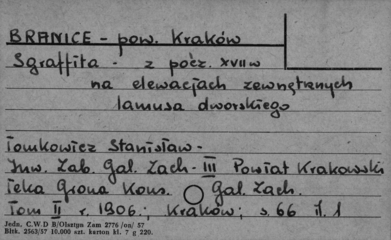 BRANICE - pow. Kraków
Sgraffita - z pocz. XVII w
na elewacjach zewnętrznych
lamusa dworskiego
Tomkowicz Stanisław -
Inw. Zab. Gal. Zach - III Powiat Krakowski
Teka Grona Kons. Gal. Zach.
Tom II r. 1906. Kraków; s. 66 il. 1
Jedn. C.W D B/Olsztyn Zam 2776 /on/ 57
Bltk. 2563/57 10.000 szt. karton kl. 7 g 220.